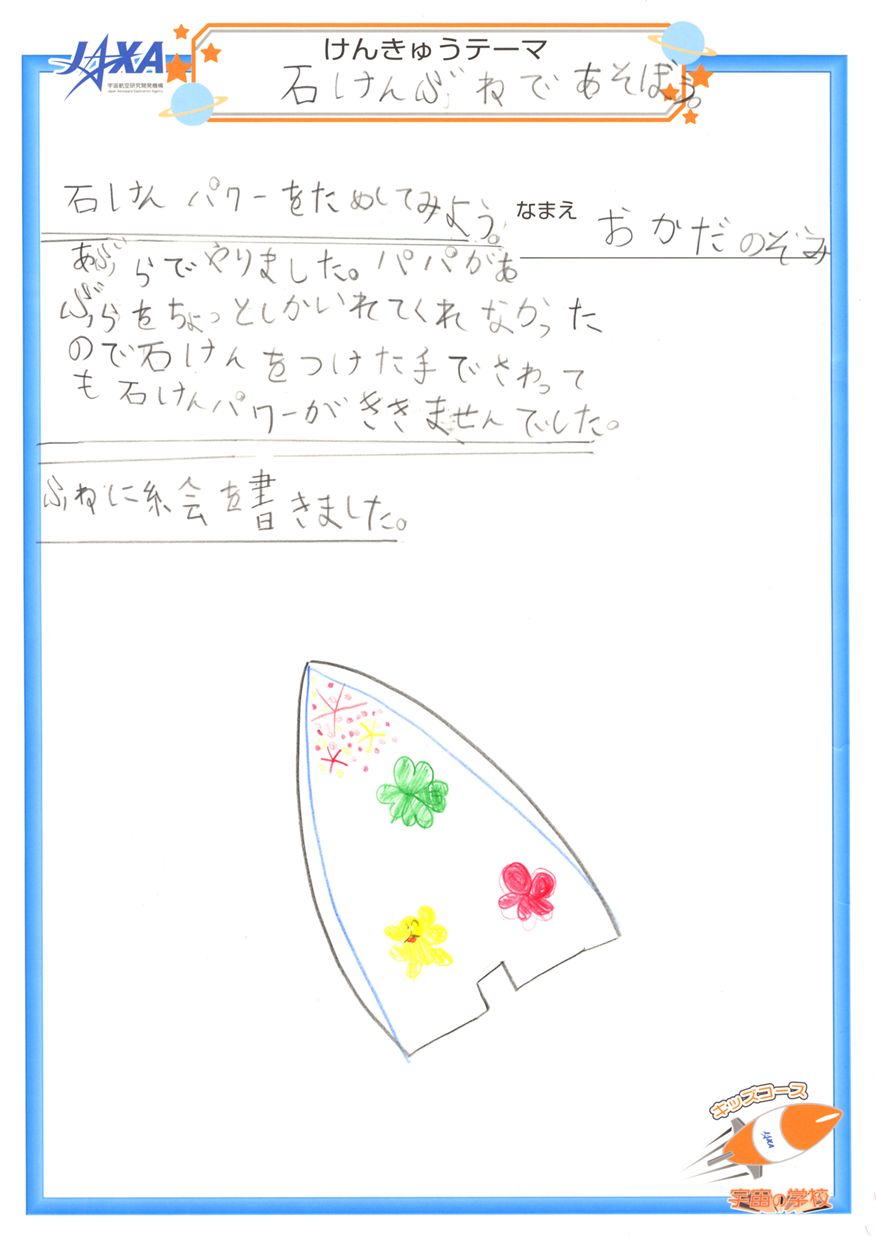 JAXA
宇宙航空研究開発機構
Japan Aerospace Exploration Agency
けんきゅうテーマ
石けんぶねであそぼう。
石けんパワーをためしてみよう。
なまえ おかだのぞみ
あぶらでやりました。パパがあ
ぶらをちょっとしかいれてくれなかった
ので石けんをつけた手でさわって
も石けんパワーがききませんでした。
ふねに絵を書きました。
キッズコース
JAXA
宇宙の学校